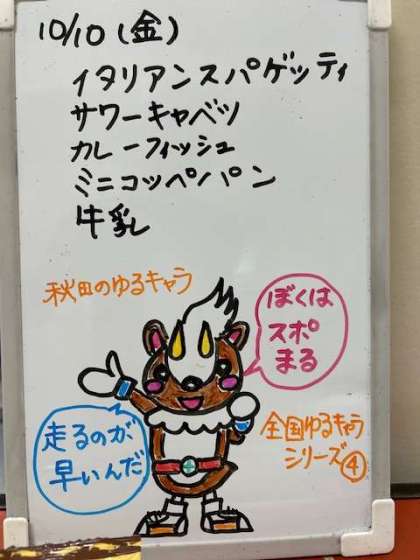 10/10(金)
イタリアンスパゲッティ
サワーキャベツ
カレーフィッシュ
ミニコッペパン
牛乳
秋田のゆるキャラ
ぼくは
スポ
まる
走るのが
早いんだ
全国ゆるキャラ
シリーズ④